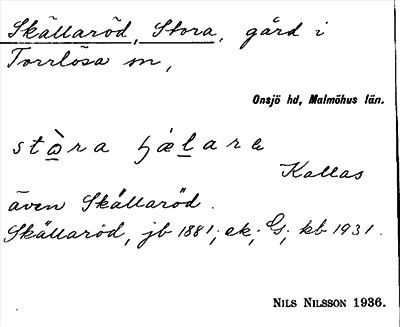 Skällaröd, Stora, gård i
Torrlösa sn,
Onsjö hd, Malmöhus län.
stòra hjælare
Kallas
även Skällaröd.
Skällaröd, jb 1881; ek; G; kb 1931.
NILS NILSSON 1936.